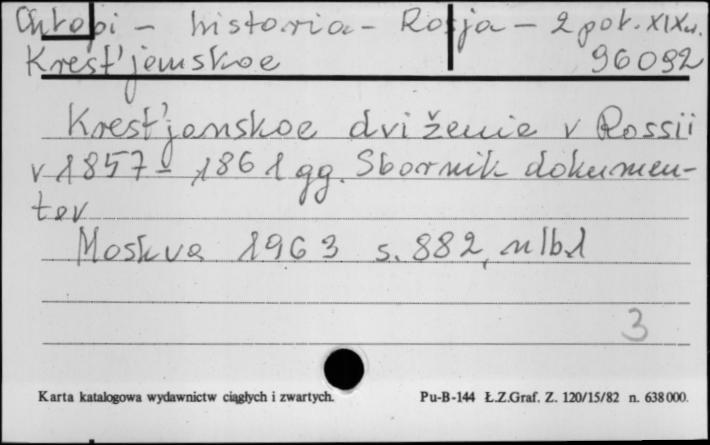 Chłopi - historia - Rosja - 2 poł. XIX w.
Krest'janskoe 96092
Krest'janskoe dviženie v Rossii
v 1857-1861 gg. Sbornik dokumen-
tov
Moskva 1963 s. 882, nlb1
3
Karta katalogowa wydawnictw ciągłych i zwartych. Pu-B-144 Ł.Z.Graf. Z. 120/15/82 n. 638000.